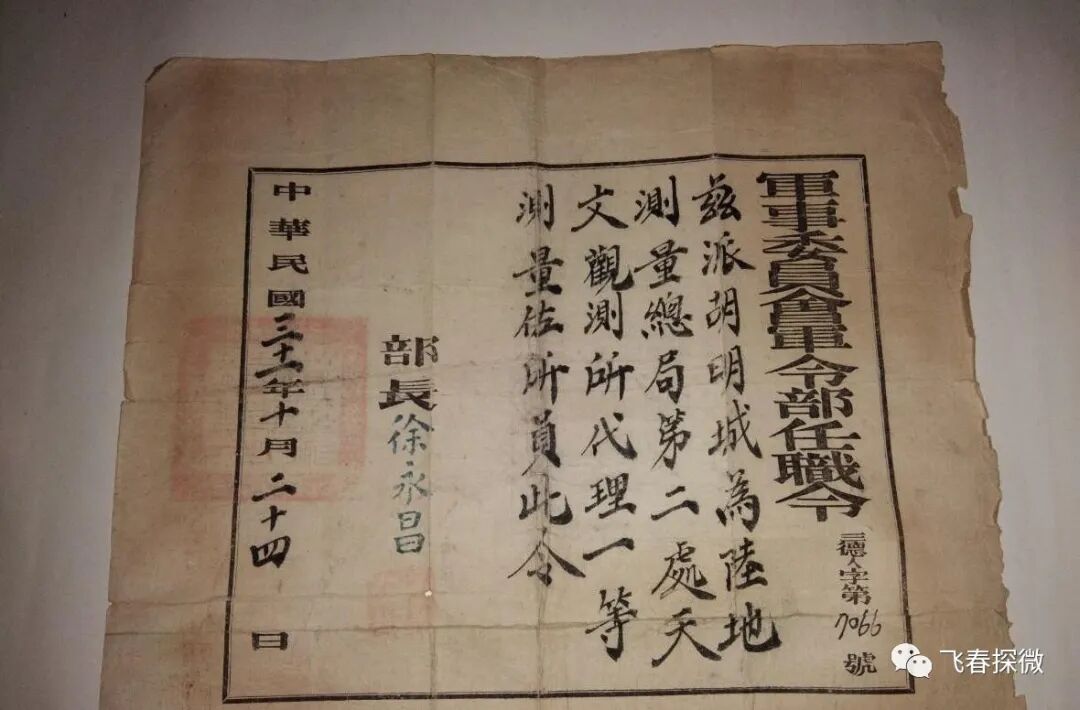 軍事委員會軍令部任職令
三德人字第7066號
茲派胡明城為陸地
測量總局第二處天
文觀測所代理一等
測量佐所員此令
部長徐永昌
中華民國三十二年十月二十四日
飞春探微